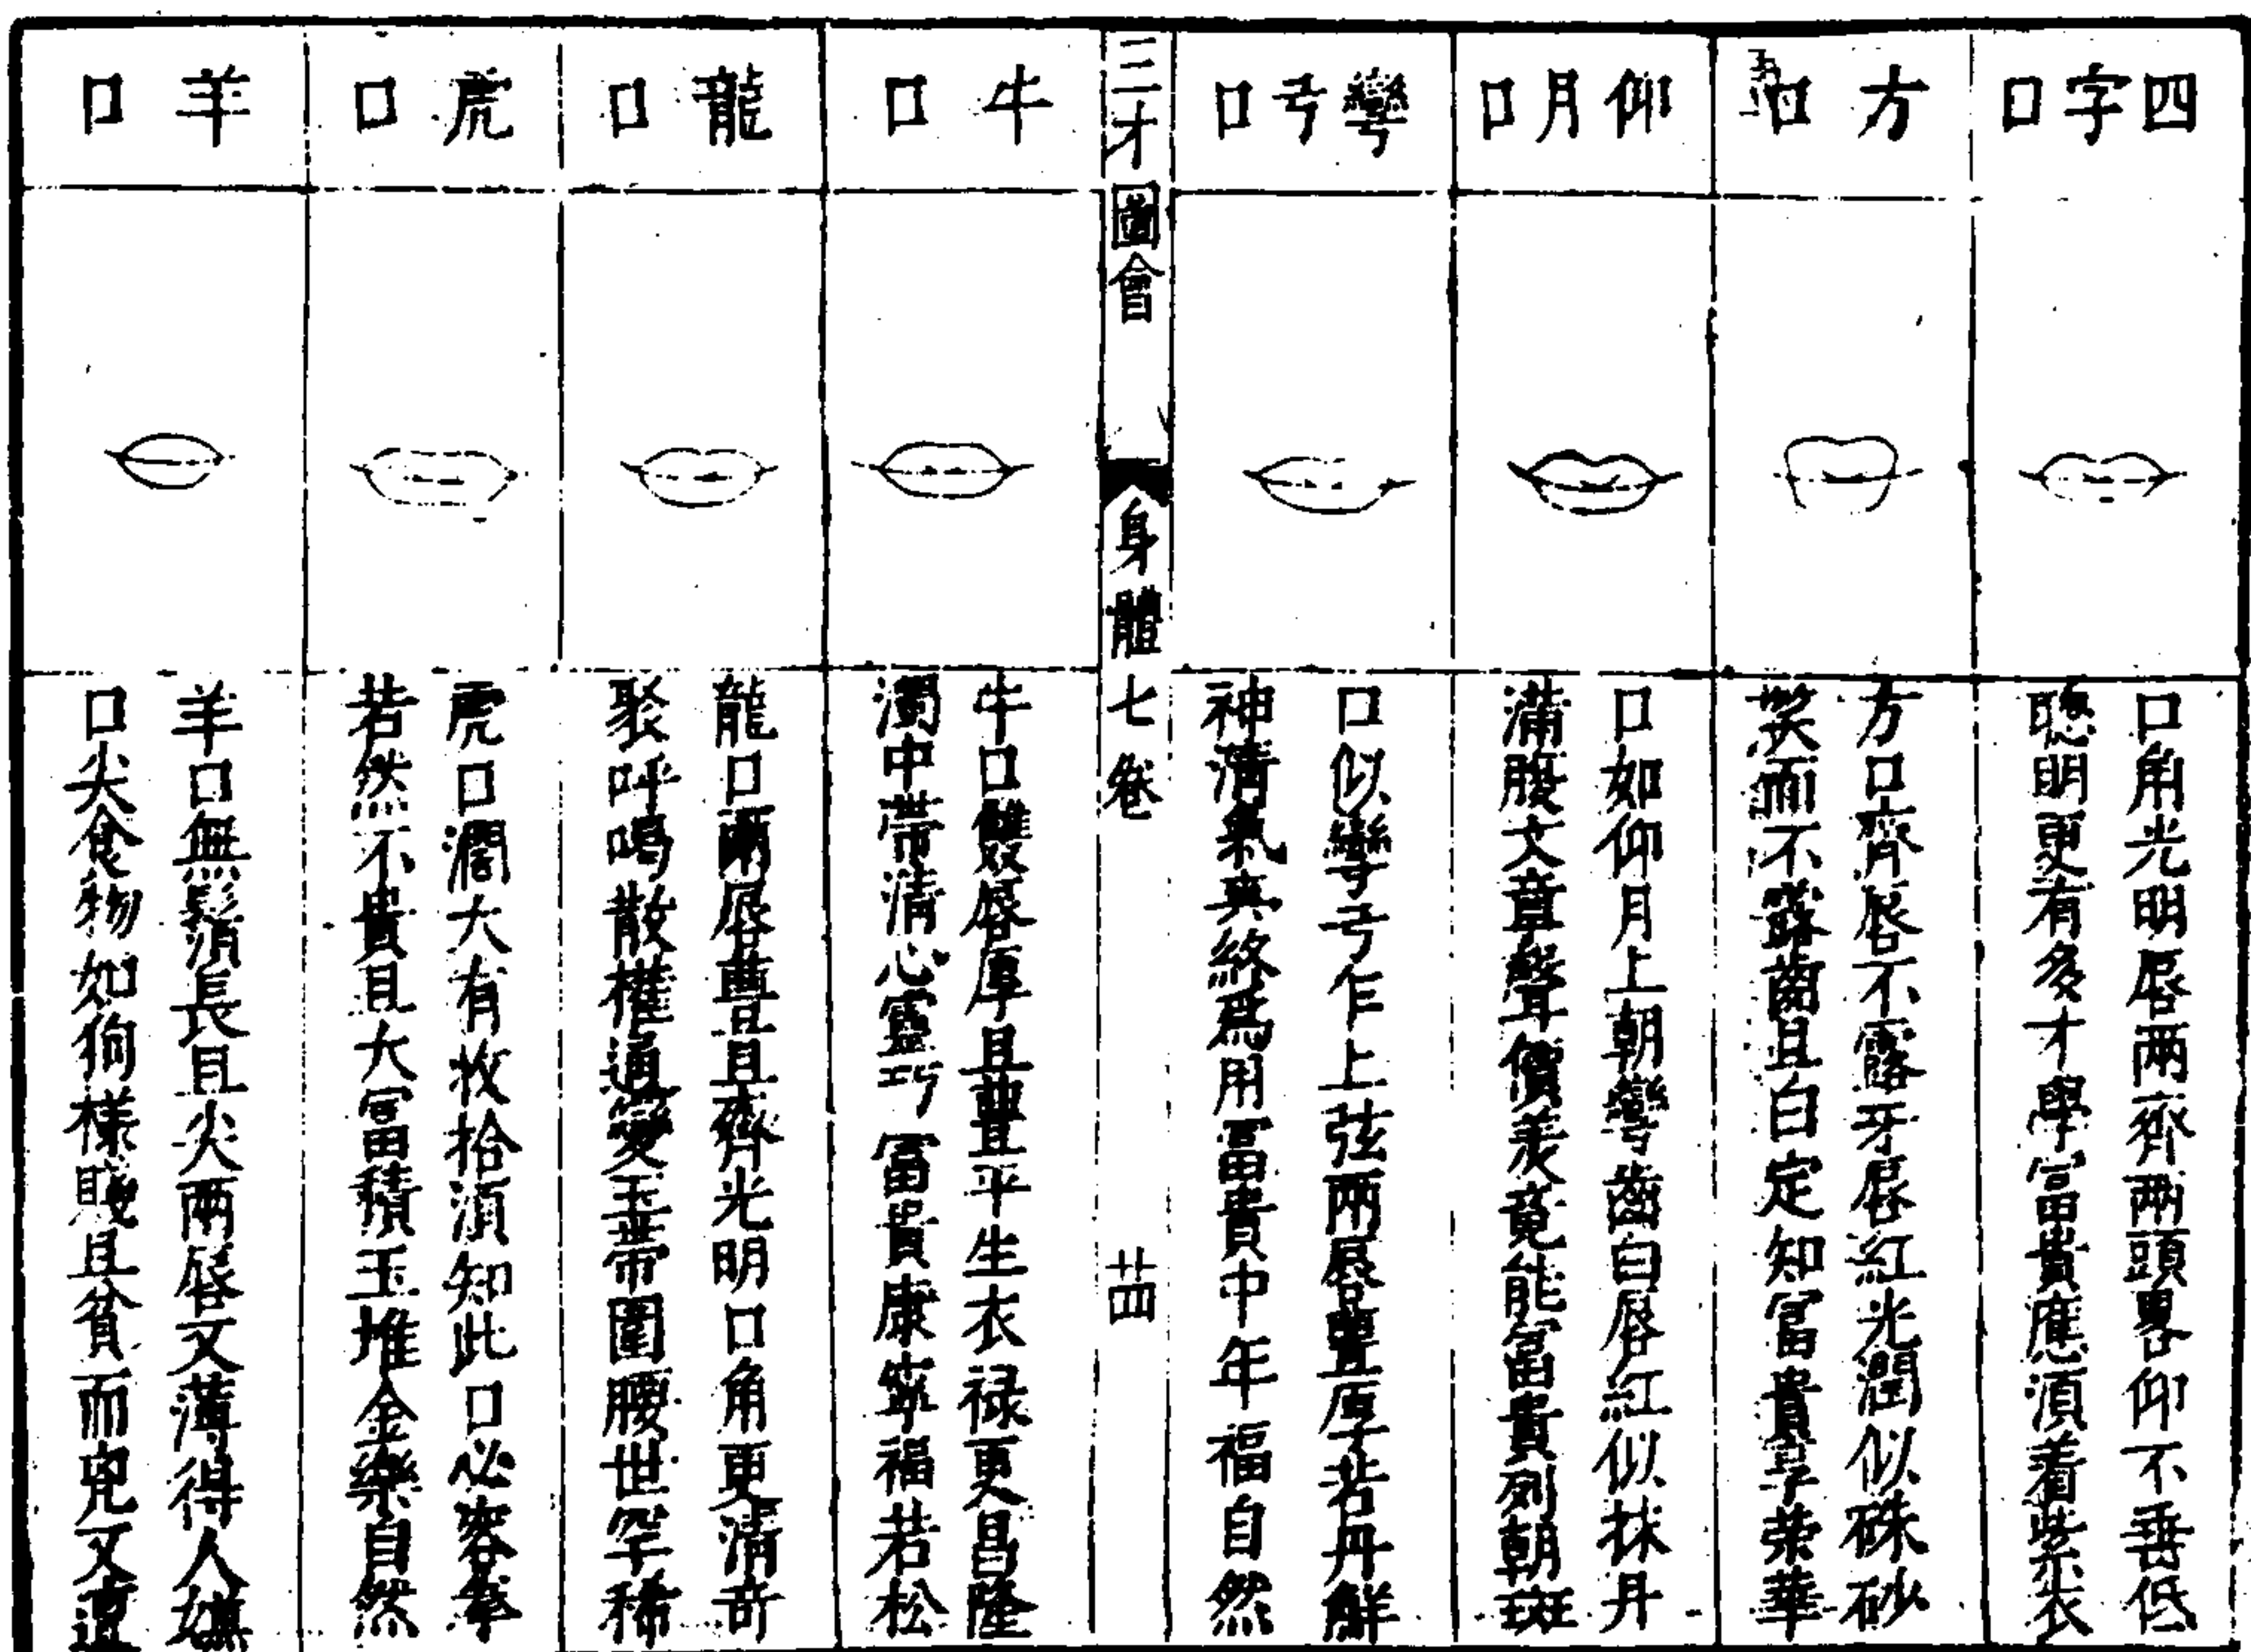 四字口
口角光明唇两齊兩頭畧仰不垂低
聰明更有多才學富貴應須着紫衣
方口
方口齊唇不露牙唇紅光潤似硃砂
笑而不露齒且白定知富貴享荣華
仰月口
口如仰月上朝彎齒白唇紅似抹丹
滿腹文章聲價羙竟能富貴列朝班
彎弓口
口似彎弓乍上弦兩唇豊厚若丹鮮
神清氣爽終爲用富貴中年福自然
三才圖會
身體七卷
廿四
牛口
牛口雙唇厚且豊平生衣禄更昌隆
濁中帶清心靈巧富貴康寧福若松
龍口
龍口兩唇豊且齊光明口角更清奇
聚呼喝散權通變玉帶圍腰世罕稀
虎口
虎口濶大有收拾須知此口必容拳
若然不貴且大富積玉堆金樂自然
羊口
羊口無鬚長且尖兩唇又薄得人嫌
口尖食物如狗樣賤且貧而兇又邅